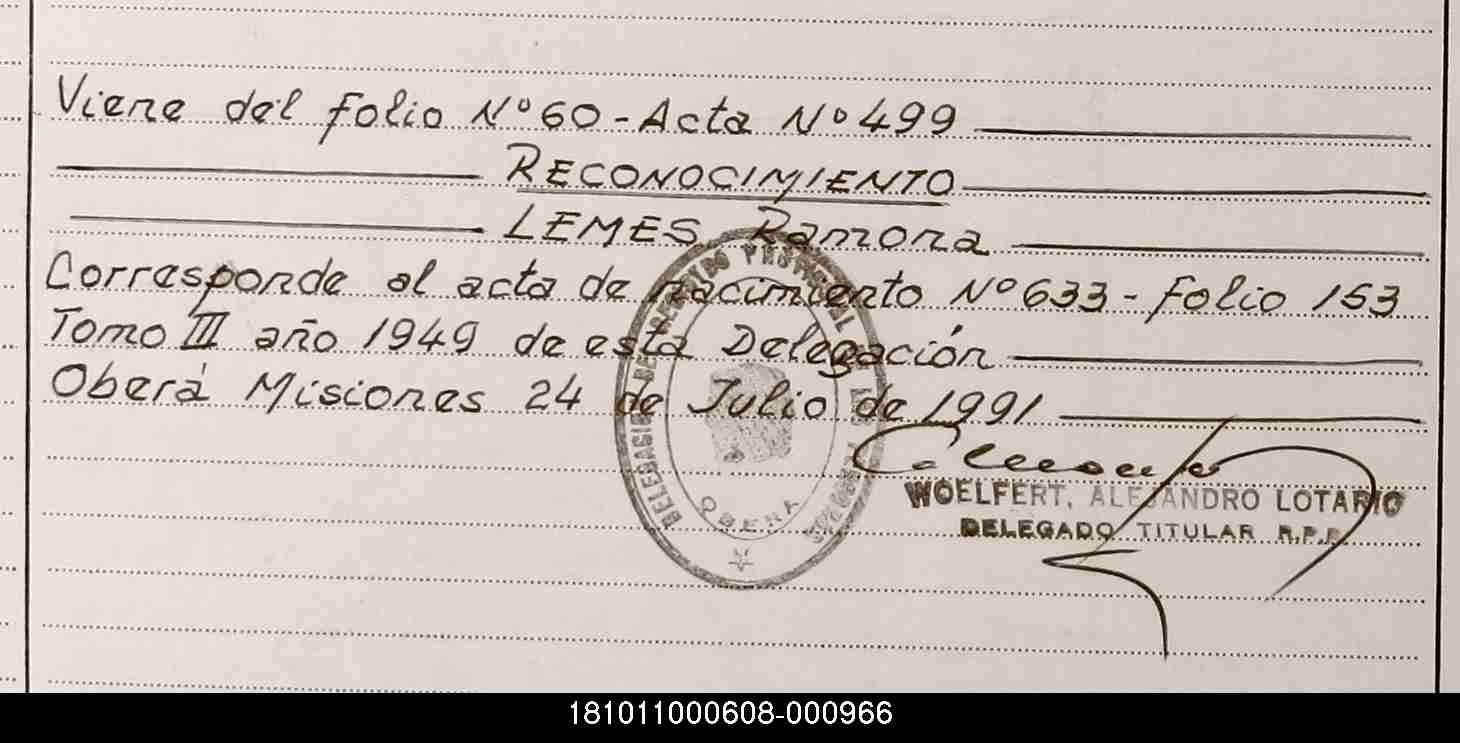 Viene del folio Nº 60 - Acta Nº 499
RECONOCIMIENTO
LEMES Ramona
Corresponde al acta de nacimiento Nº 633 - Folio 153
Tomo III año 1949 de esta Delegación
Oberá Misiones 24 de Julio de 1991
WOELFERT, ALEJANDRO LOTARIO
DELEGADO TITULAR R.P.P.
OBERA
181011000608-000966